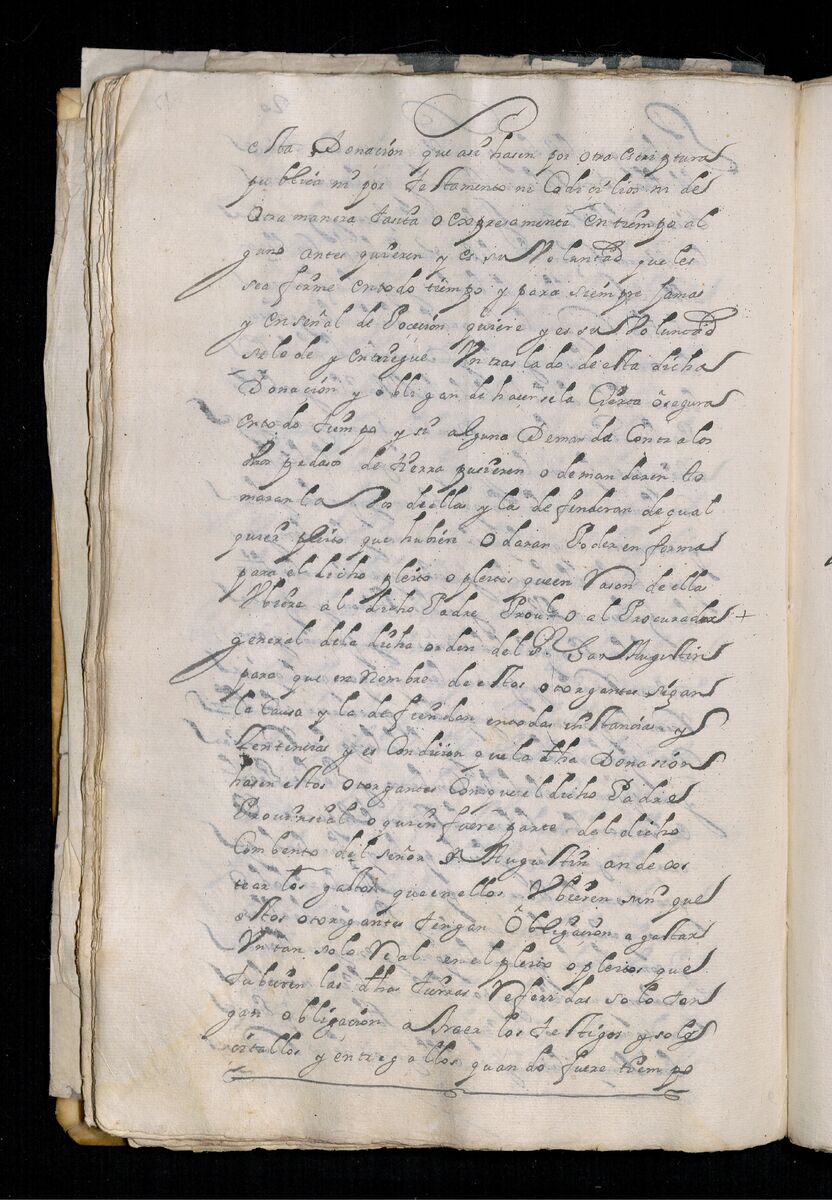 esta Donación que asi hasen por otra escriptura
publica ni por testamento ni Codicilios ni de
Otra manera tasita o expresamente en tiempo al
guno antes quieren y es su Voluntad que les
sea firme en todo tiempo y para siempre jamas
y en señal de Poceción quiere y es su Voluntad
se lo de y entregue Un traslado de esta dicha
Donación y obligan de haserse la Cierta o segura
en todo tiempo y si alguna Demanda Contra los
dhos pedaso de tierra pusieren o demandaren to
maran la Vos de ella y la defenderan de qual
quier pleito que hubiere O daran Poder en forma
para el dicho pleito o pleitos que en Rason de ella
Ubiere al dicho Padre Provl O al Procurador +
general de la dicha orden del Sr San Augustin
para que en Nombre de estos otorgantes sigan
la Causa y la defiendan en todas instancias y
Sentencias y es Condision que la dha Donasión
hasen estos otorgantes Con que el dicho Padre
Provinsial o quien fuere parte del dicho
Combento del señor Sn Augustin an de cos
tear los gastos que en ellos Ubieren sin que
estos otorgantes tengan Obligación a gastar
Un tan solo Real en el pleito o pleitos que
tubieren las dhas tierras Referidas solo ten
gan obligación a traer los testigos y solo
citallos y entregallos quando fuere tiempo